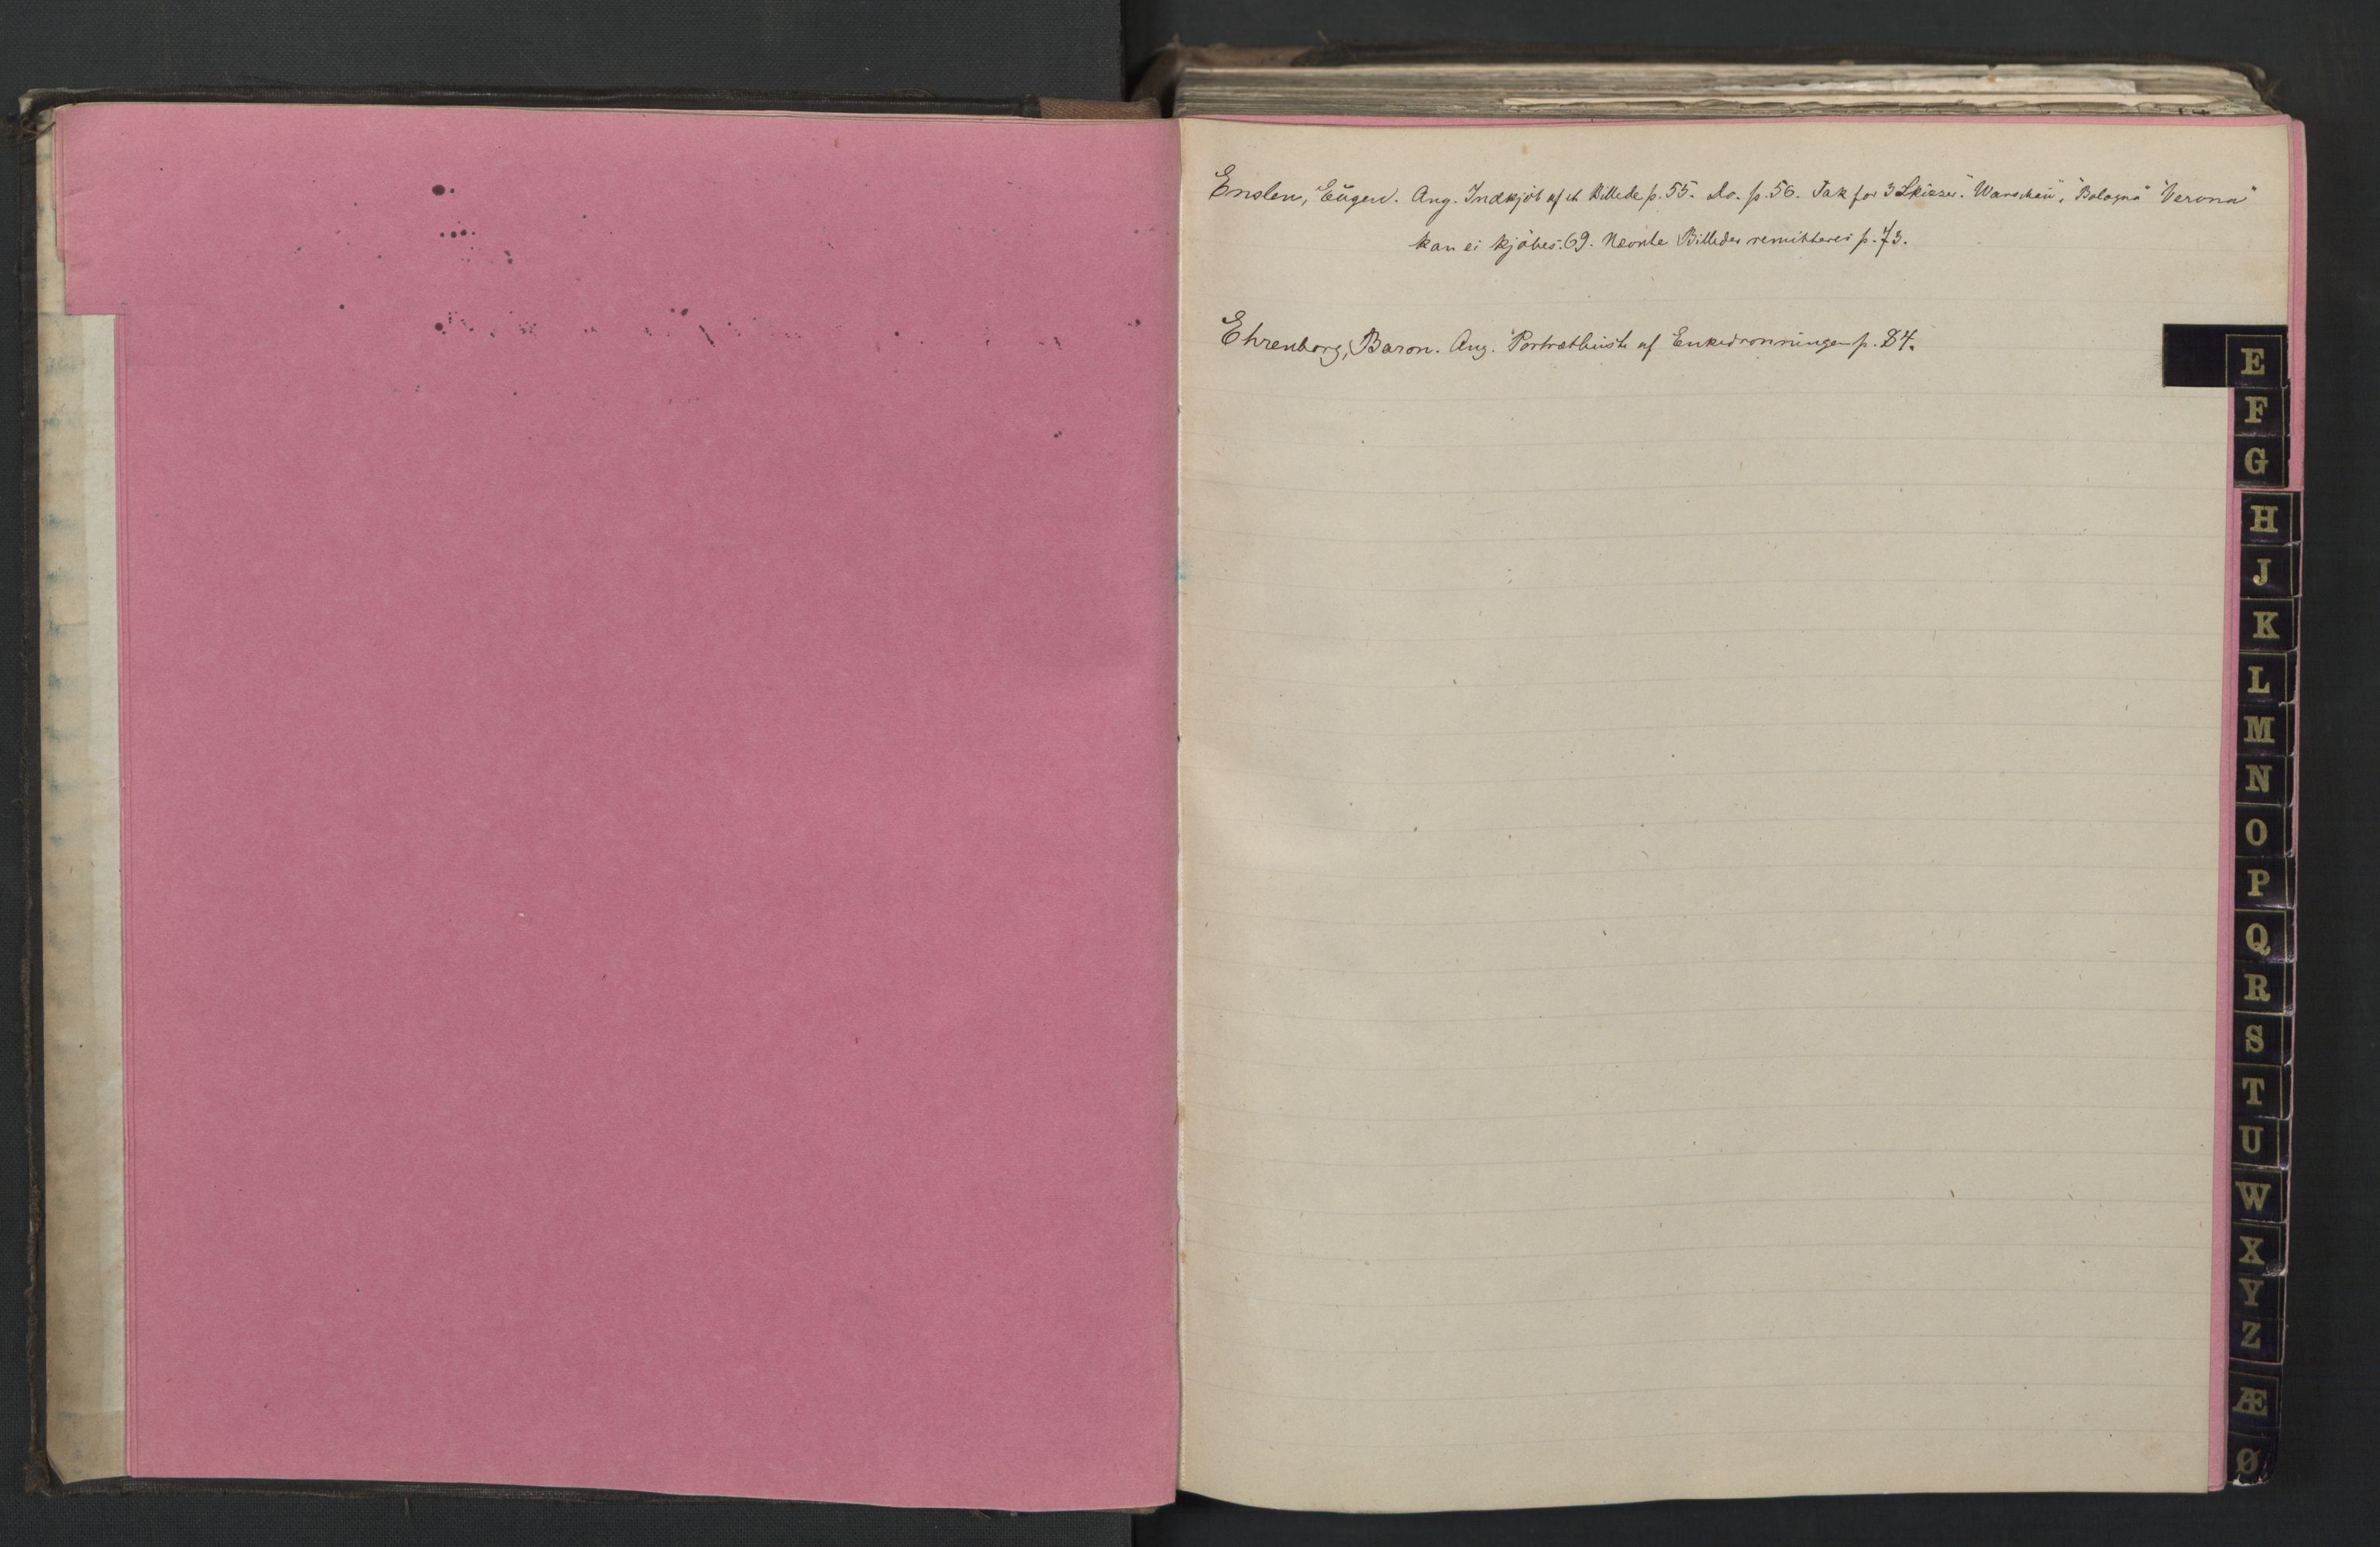 Enslen, Eugen. Ang. Indkjöb af et Billede p. 55. do. p. 56. Tak for 3 Skizzer. "Warschau", "Bologna" "Verona"
kan ei kjöbes. 69. Nevnte Billeder remitteres p. 73.
Ehrenborg, Baron. Ang. Portrætbüste af Enkedronningen p. 84.
E
F
G
H
J
K
L
M
N
O
P
Q
R
S
T
U
W
X
Y
Z
Æ
Ø